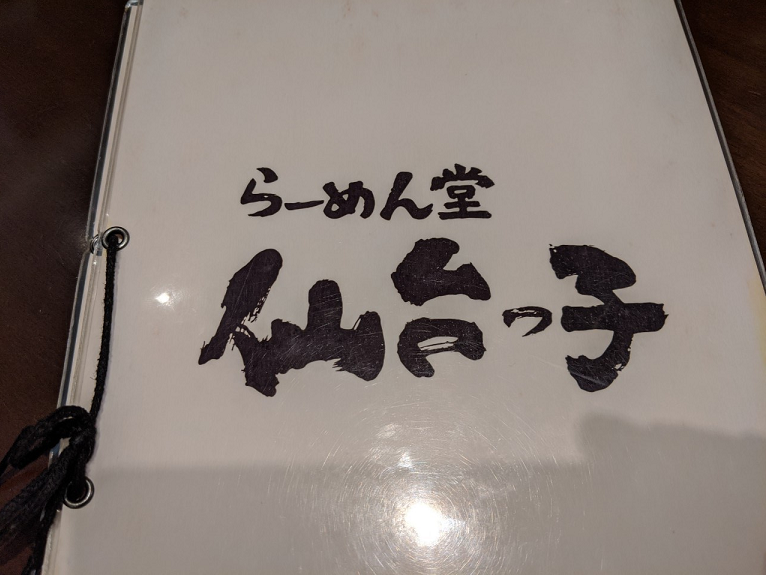 らーめん堂
仙台っ子